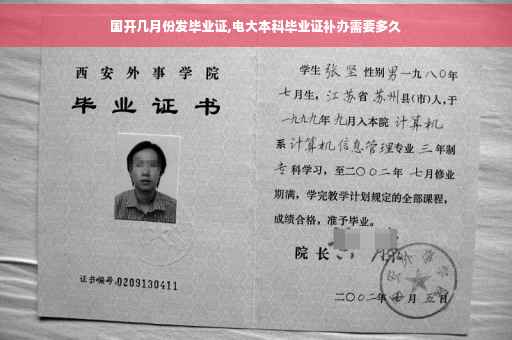 国开几月份发毕业证,电大本科毕业证补办需要多久
西安外事学院
毕业证书
证书编号:0209130411
学生 张坚 性别 男 一九八〇年
七月生,江苏省 苏州县(市)人,于
一九九九年 九月入本院 计算机
系 计算机信息管理专业 三 年制
专科学习,至二〇〇二年 七月修业
期满,学完教学计划规定的全部课程,
成绩合格,准予毕业。
院长
二〇〇二年 七 月 五 日